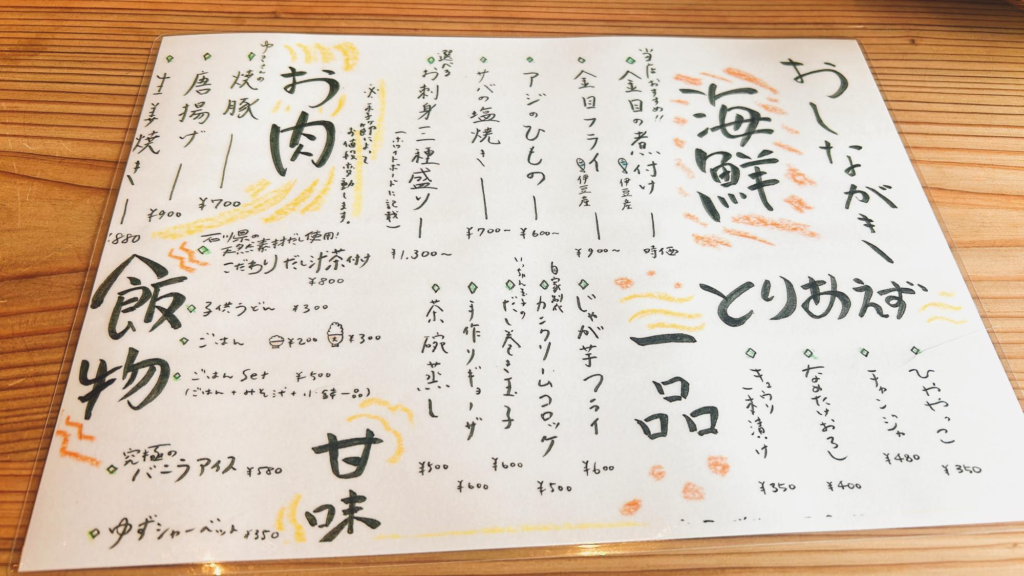 おしながき
海鮮
当店おすすめ!!
金目の煮付け 伊豆産 時価
金目フライ 伊豆産 ¥900〜
アジのひもの ¥600〜
サバの塩焼き ¥700〜
選べる
お刺身二種盛り ¥1,300〜
(ホワイトボードに記載)
※季節によって
お値段変動します。
お肉
焼豚 ¥700
唐揚げ ¥900
生姜焼き ¥880
とりあえず
ひややっこ ¥350
チャンジャ ¥480
なめたけおろし ¥400
キュウリ一本漬け ¥350
一品
じゃが芋フライ ¥600
自家製
カニクリームコロッケ ¥500
だし巻き玉子 ¥600
手作りギョーザ ¥600
茶碗蒸し ¥500
飯物
石川県の
天然素材だし使用!
こだわりだし汁茶付け
¥800
子供うどん ¥300
ごはん ¥200 ¥300
ごはんset ¥500
(ごはん+みそ汁+小鉢一品)
甘味
究極の
バニラアイス ¥580
ゆずシャーベット ¥350